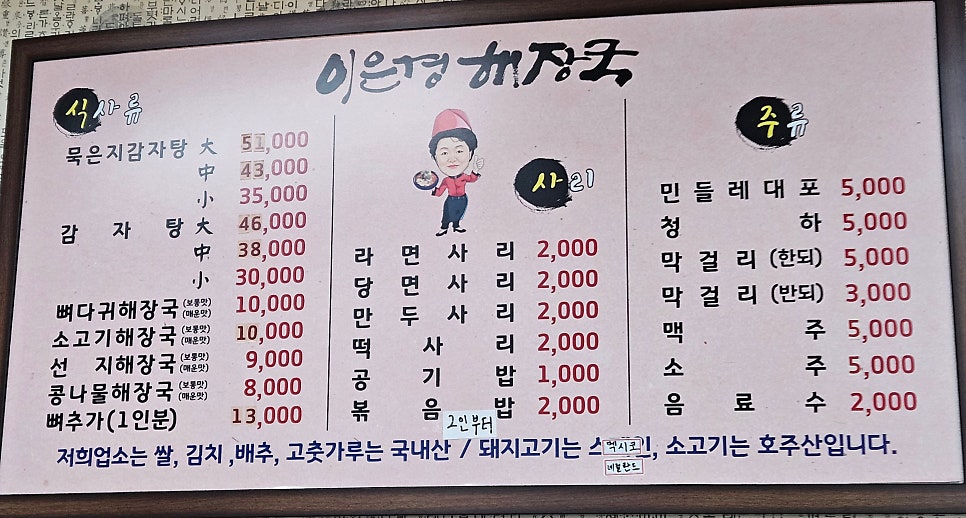 이은경 해장국
식사류
묵은지감자탕 大 51,000
中 43,000
小 35,000
감자탕 大 46,000
中 38,000
小 30,000
뼈다귀해장국 (보통맛) (매운맛) 10,000
소고기해장국 (보통맛) (매운맛) 10,000
선지해장국 (보통맛) (매운맛) 9,000
콩나물해장국 (보통맛) (매운맛) 8,000
뼈추가(1인분) 13,000
사리
라면사리 2,000
당면사리 2,000
만두사리 2,000
떡사리 2,000
공기밥 1,000
볶음밥 2,000
2인부터
주류
민들레대포 5,000
청하 5,000
막걸리 (한되) 5,000
막걸리 (반되) 3,000
맥주 5,000
소주 5,000
음료수 2,000
저희업소는 쌀, 김치 ,배추, 고춧가루는 국내산 / 돼지고기는 스 멕시코 인, 소고기는 호주산입니다.
네덜란드